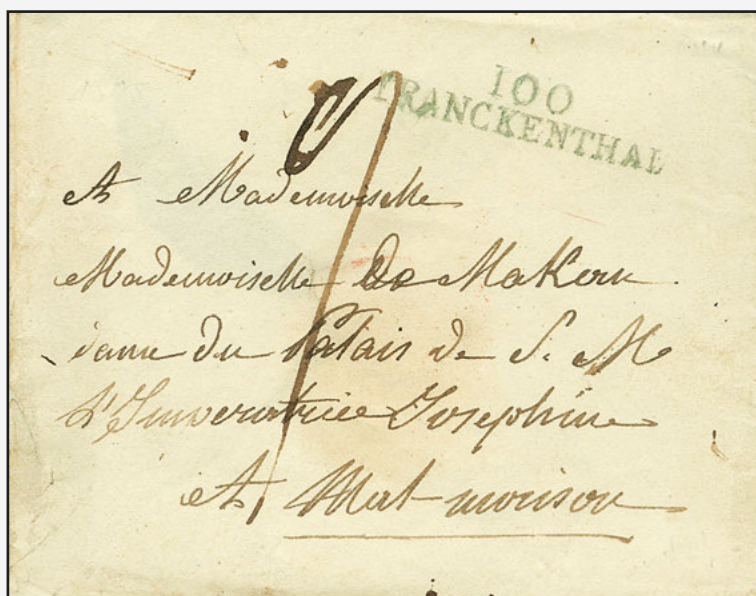 100
FRANCKENTHAL
A Mademoiselle
Mademoiselle de Makau
dame du Palais de S. M
L'Imperatrice Josephine
A Mal-maison